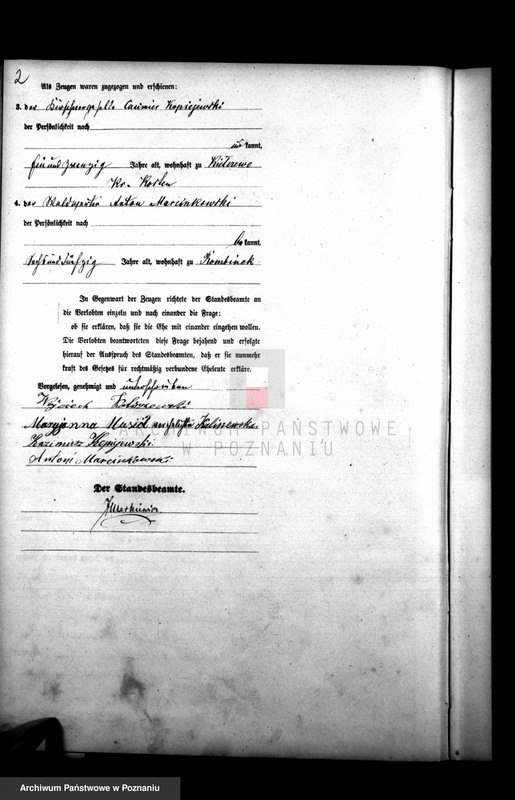 2
Als Zeugen waren zugezogen und erschienen:
3. der Casimir Kopiejewski
der Persönlichkeit nach
kannt,
Ein und zwanzig Jahre alt, wohnhaft zu
Kr. Kosten
4. der Anton Marcinkowski
der Persönlichkeit nach
be kannt,
Sechs und fünfzig Jahre alt, wohnhaft zu Rombinek
In Gegenwart der Zeugen richtete der Standesbeamte an
die Verlobten einzeln und nach einander die Frage:
ob sie erklären, daß sie die Ehe mit einander eingehen wollen.
Die Verlobten beantworteten diese Frage bejahend und erfolgte
hierauf der Ausspruch des Standesbeamten, daß er sie nunmehr
kraft des Gesetzes für rechtmäßig verbundene Eheleute erkläre.
Vorgelesen, genehmigt und unterschrieben
Wojciech
Maryjanna verehelichte Kaliszewska
Kazimierz
Antoni Marcinkowski
Der Standesbeamte.
ARCHIWUM PAŃSTWOWE
W POZNANIU
Archiwum Państwowe w Poznaniu